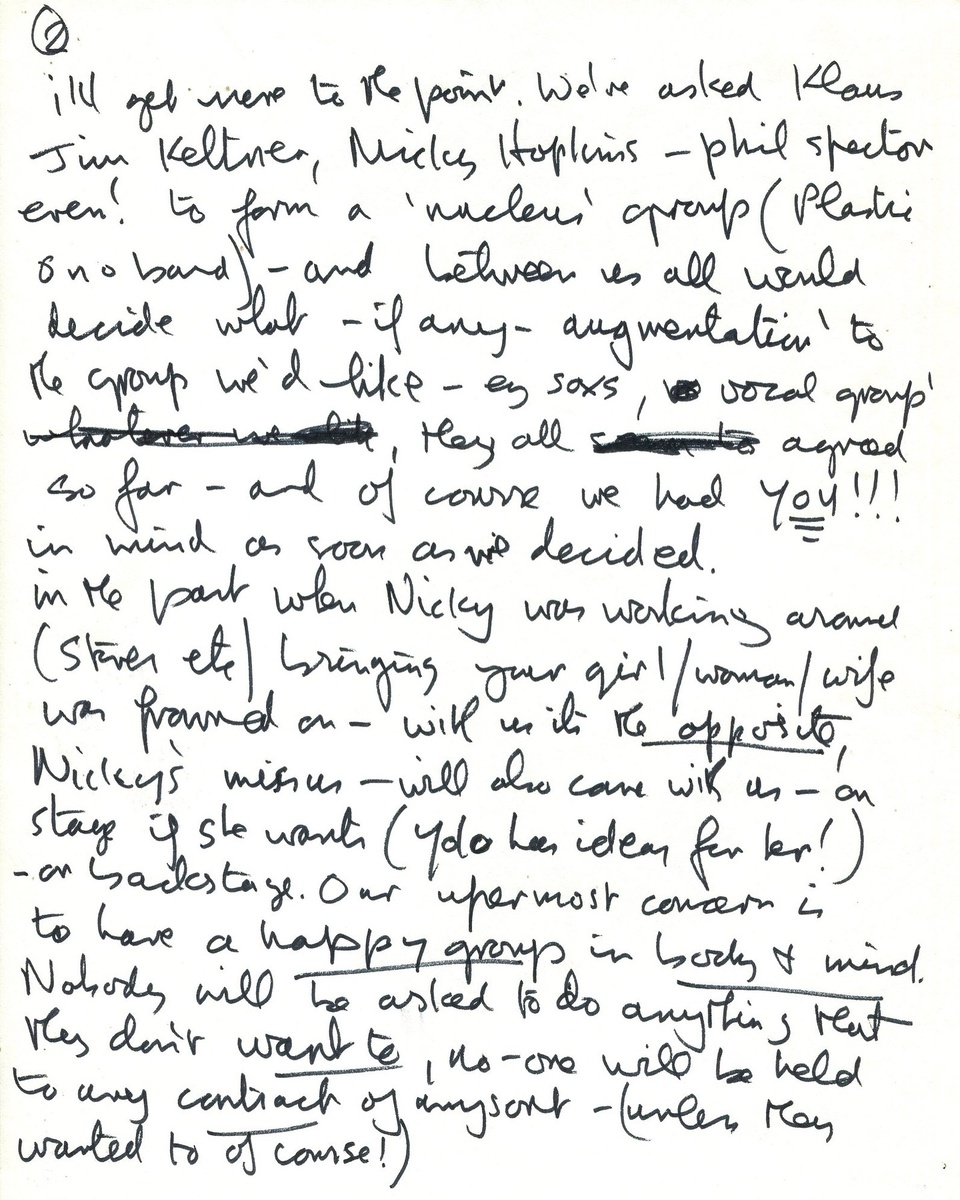 ②
i'll get more to the point. We've asked Klaus
Jim Keltner, Nicky Hopkins – phil spector
even! to form a 'nucleus' group (Plastic
ono band) – and between us all would
decide what – if any – augmentation' to
the group we'd like – eg saxs, vocal group'
whatever we like, they all agreed
so far – and of course we had YOU!!!
in mind as soon as we decided.
in the past when Nicky was working around
(Stones etc) bringing your girl/woman/wife
was frowned on – with us it's the opposite,
Nicky's missus – will also come with us – on
stage if she wants (Yoko has ideas for her!)
– or backstage. Our uppermost concern is
to have a happy group in body & mind.
Nobody will be asked to do anything that
they don't want to, no-one will be held
to any contract of anysort – (unless they
wanted to of course!)